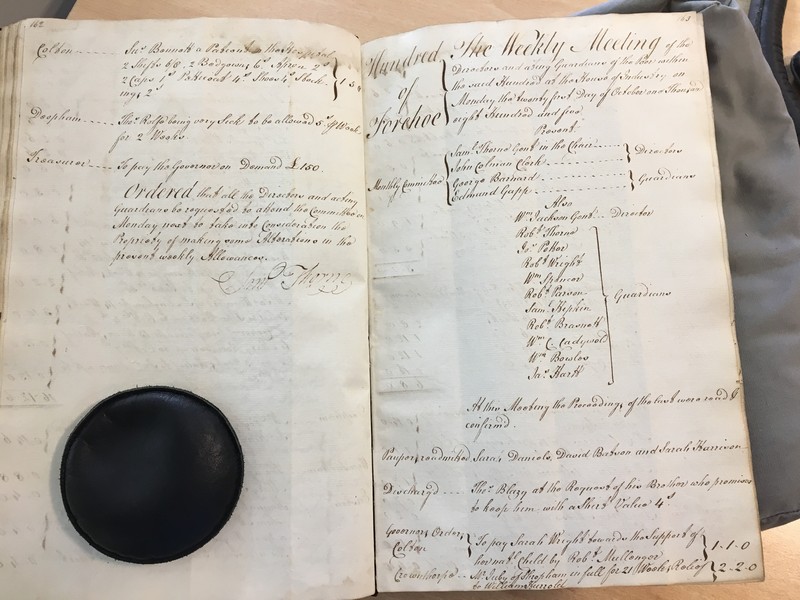 162
Colton ---- Sar. Bennett a Patient in the Hospital
2 Shifts 6/8, 2 Bedgowns 6s Apron 2s
2 Caps 1s Petticoat 4s Shoes 4s Stock-
ings 2s
Deopham ---- Thos. Rolfe being very Sick to be allowed 5s ⅌ Week
for 2 Weeks
Treasurer ---- To pay the Governor on Demand £150.
Ordered that all the Directors and acting
Guardians be requested to attend the Committee on
Monday next to take into Consideration the
Propriety of making some Alterations in the
present weekly Allowances.
Saml Thorne
163
Hundred
of
Forehoe
The Weekly Meeting of the
Directors and acting Guardians of the Poor within
the said Hundred at the House of Industry on
Monday the twenty first Day of October one Thousand
eight Hundred and five
Present
Monthly Committee
Saml. Thorne Gent in the Chair ---- Directors
John Colman Clerk
George Barnard ---- Guardians
Edmund Gapp
Also
Wm. Jackson Gent. -- Director
Robt. Thorne
Jos. Potter
Robt. Wright
Wm. Spencer
Robt. Parson
Saml. Kepkin
Guardians
Robt. Brasnett
Wm. C. Ladywold
Wm. Bowles
Jas. Hartt
At this Meeting the Proceedings of the last were read &
confirmd.
Paupers readmitted Sara. Daniels, David Batson and Sarah Harrison
Dischargd ---- Thos. Blazy at the Request of his Brother who promises
to keep him with a Shirt Value 4s
Governors Orders
Colton
To pay Sarah Wright towards the Support of
her nat. Child by Robt. Mullenger
1-1-0
Crownthorpe -- Mr. Juby of Shropham in full for 21 Weeks Relief 2-2-0
to William